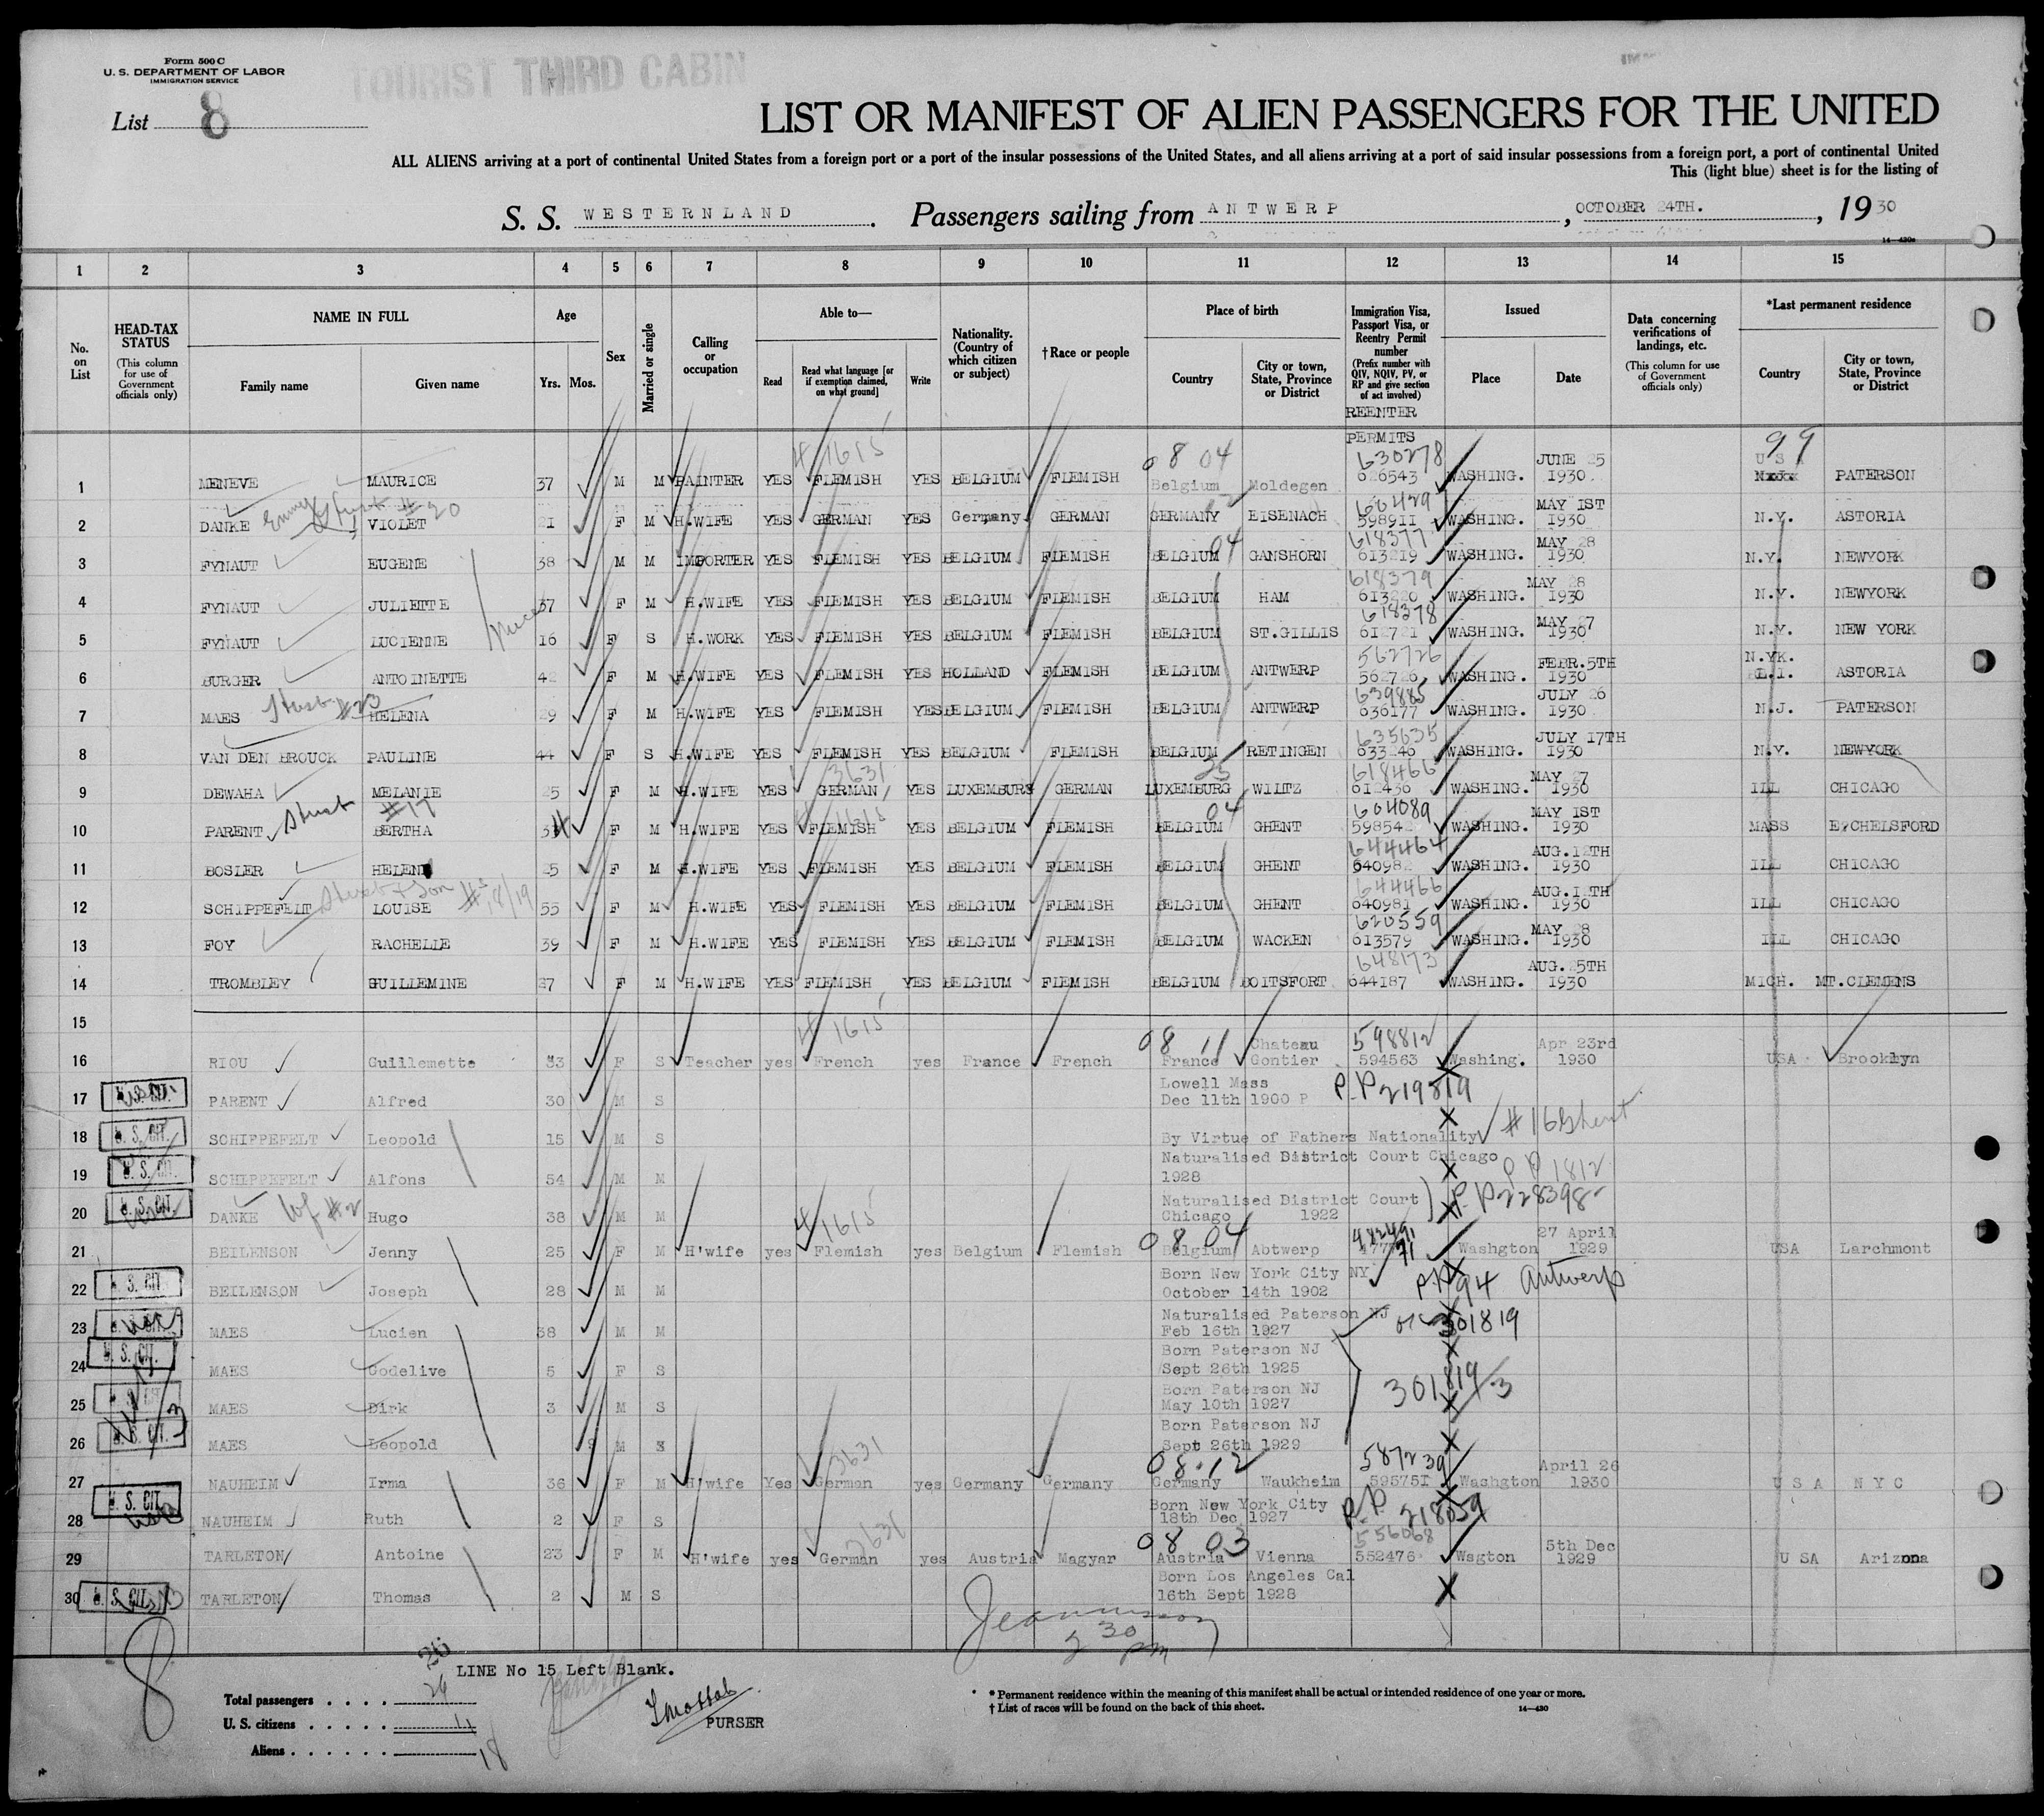 Form 500 C
U. S. DEPARTMENT OF LABOR
IMMIGRATION SERVICE
TOURIST THIRD CABIN
List 8
LIST OR MANIFEST OF ALIEN PASSENGERS FOR THE UNITED
ALL ALIENS arriving at a port of continental United States from a foreign port or a port of the insular possessions of the United States, and all aliens arriving at a port of said insular possessions from a foreign port, a port of continental United
This (light blue) sheet is for the listing of
S. S. WESTERNLAND. Passengers sailing from ANTWERP, OCTOBER 24TH., 1930
14—430a
1 2 3 4 5 6 7 8 9 10 11 12 13 14 15
No. on List
HEAD-TAX STATUS (This column for use of Government officials only)
NAME IN FULL
Family name Given name
Age
Yrs. Mos.
Sex
Married or single
Calling or occupation
Able to—
Read
Read what language [or if exemption claimed, on what ground]
Write
Nationality. (Country of which citizen or subject)
†Race or people
Place of birth
Country
City or town, State, Province or District
Immigration Visa, Passport Visa, or Reentry Permit number (Prefix number with QIV, NQIV, PV, or RP and give section of act involved)
REENTER
PERMITS
Issued
Place Date
Data concerning verifications of landings, etc. (This column for use of Government officials only)
*Last permanent residence
Country
City or town, State, Province or District
4 1615 08 04 630278 99
1 MENEVE MAURICE 37 M M PAINTER YES FLEMISH YES BELGIUM FLEMISH Belgium Moldegen 626543 WASHING. JUNE 25 1930 USA PATERSON
2 DANKE VIOLET 21 F M H.WIFE YES GERMAN YES Germany GERMAN GERMANY EISENACH 598911 WASHING. MAY 1ST 1930 N.Y. ASTORIA
618377
3 FYNAUT EUGENE 38 M M IMPORTER YES FLEMISH YES BELGIUM FLEMISH BELGIUM GANSHORN 613219 WASHING. MAY 28 1930 N.Y. NEWYORK
618379
4 FYNAUT JULIETTE 37 F M H.WIFE YES FLEMISH YES BELGIUM FLEMISH BELGIUM HAM 613220 WASHING. MAY 28 1930 N.Y. NEWYORK
618378
5 FYNAUT LUCIENNE 16 F S H.WORK YES FLEMISH YES BELGIUM FLEMISH BELGIUM ST.GILLIS 612721 WASHING. MAY 27 1930 N.Y. NEW YORK
562726
6 BURGER ANTOINETTE 42 F M H.WIFE YES FLEMISH YES HOLLAND FLEMISH BELGIUM ANTWERP 562726 WASHING. FEBR.5TH 1930 N.YK. L.I. ASTORIA
639885
7 MAES HELENA 29 F M H.WIFE YES FLEMISH YES BELGIUM FLEMISH BELGIUM ANTWERP 636177 WASHING. JULY 26 1930 N.J. PATERSON
635635
8 VAN DEN BROUCK PAULINE 44 F S H.WIFE YES FLEMISH YES BELGIUM FLEMISH BELGIUM RETINGEN 633246 WASHING. JULY 17TH 1930 N.Y. NEWYORK
3631 25 618466
9 DEWAHA MELANIE 25 F M H.WIFE YES GERMAN YES LUXEMBURG GERMAN LUXEMBURG WILTZ 612436 WASHING. MAY 27 1930 ILL CHICAGO
#17 1615 04 604089
10 PARENT BERTHA F M H.WIFE YES FLEMISH YES BELGIUM FLEMISH BELGIUM GHENT 598542 WASHING. MAY 1ST 1930 MASS E.CHELSFORD
644464
11 BOSLER HELEN 25 F M H.WIFE YES FLEMISH YES BELGIUM FLEMISH BELGIUM GHENT 640982 WASHING. AUG.12TH 1930 ILL CHICAGO
644466
12 SCHIPPEFELT LOUISE 55 F M H.WIFE YES FLEMISH YES BELGIUM FLEMISH BELGIUM GHENT 640981 WASHING. AUG.12TH 1930 ILL CHICAGO
620559
13 FOY RACHELLE 39 F M H.WIFE YES FLEMISH YES BELGIUM FLEMISH BELGIUM WACKEN 613579 WASHING. MAY 28 1930 ILL CHICAGO
648173
14 TROMBLEY GUILLEMINE 27 F M H.WIFE YES FLEMISH YES BELGIUM FLEMISH BELGIUM BOITSFORT 644187 WASHING. AUG.25TH 1930 MICH. MT.CLEMENS
15
4 1615 08 11 598812
16 RIOU Guillemette 33 F S Teacher yes French yes France French France Chateau Gontier 594563 Washing. Apr 23rd 1930 USA Brooklyn
17 U.S. CIT. PARENT Alfred 30 M S Lowell Mass Dec 11th 1900 P.P. 219819
18 U. S. CIT. SCHIPPEFELT Leopold 15 M S By Virtue of Fathers Nationality #16 Ghent
19 U. S. CIT. SCHIPPEFELT Alfons 54 M M Naturalised District Court Chicago 1928 PP 1812
20 U. S. CIT. DANKE wf #2 Hugo 38 M M Naturalised District Court Chicago 1922 P.P. 228398
4 1615 08 04
21 BEILENSON Jenny 25 F M H'wife yes Flemish yes Belgium Flemish Belgium Abtwerp Washgton 27 April 1929 USA Larchmont
22 U. S. CIT. BEILENSON Joseph 28 M M Born New York City NY October 14th 1902 P.P. 94 Antwerp
23 U. S. CIT. MAES Lucien 38 M M Naturalised Paterson NJ Feb 16th 1927 301819
24 U. S. CIT. MAES Godelive 5 F S Born Paterson NJ Sept 26th 1925
25 U. S. CIT. MAES Dirk 3 M S Born Paterson NJ May 10th 1927 301819/3
26 U. S. CIT. MAES Leopold M S Born Paterson NJ Sept 26th 1929
3631 08.12 587239
27 NAUHEIM Irma 36 F M H'wife Yes German yes Germany Germany Germany Waukheim 595751 Washgton April 26 1930 U S A N Y C
28 U. S. CIT. NAUHEIM Ruth 2 F S Born New York City 18th Dec 1927 P.P. 218059
3631 08 03 556068
29 TARLETON Antoine 23 F M H'wife yes German yes Austria Magyar Austria Vienna 552476 Wsgton 5th Dec 1929 U SA Arizona
30 U. S. CIT. TARLETON Thomas 2 M S Born Los Angeles Cal 16th Sept 1928
2 30 pm
8
LINE No 15 Left Blank.
Total passengers . . . .
U. S. citizens . . . . . 11
Aliens . . . . . . 18
PURSER
* Permanent residence within the meaning of this manifest shall be actual or intended residence of one year or more.
† List of races will be found on the back of this sheet.
14—430